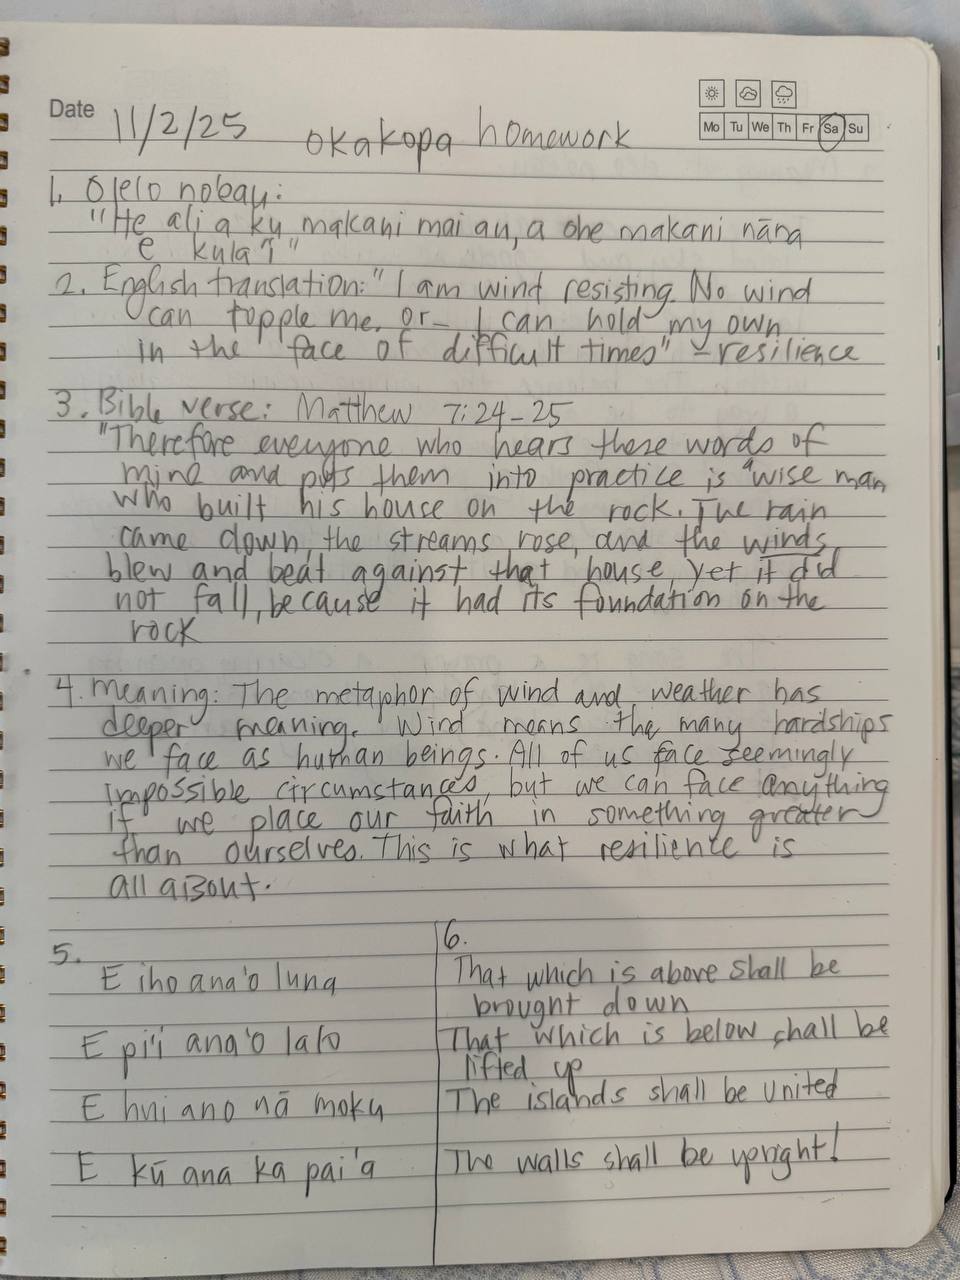 Date 11/2/25 okakopa homework
Mo Tu We Th Fr Sa Su
1. Olelo nobau:
"He ali a ku makani mai au, a ohe makani nāna
e kula'i"
2. English translation: "I am wind resisting. No wind
can topple me. or- I can hold my own
in the face of difficult times" - resilience
3. Bible verse: Matthew 7:24-25
"Therefore everyone who hears these words of
mine and puts them into practice is a wise man
who built his house on the rock. The rain
came down, the streams rose, and the winds
blew and beat against that house, yet it did
not fall, because it had its foundation on the
rock
4. Meaning: The metaphor of wind and weather has
deeper meaning. Wind means the many hardships
we face as human beings. All of us face seemingly
impossible circumstances, but we can face anything
if we place our faith in something greater
than ourselves. This is what resilience is
all about.
5.
E iho ana 'o luna
E pi'i ana 'o lalo
E hui ano nā moku
E kū ana ka pai'a
6.
That which is above shall be
brought down
That which is below shall be
lifted up
The islands shall be united
The walls shall be upright!